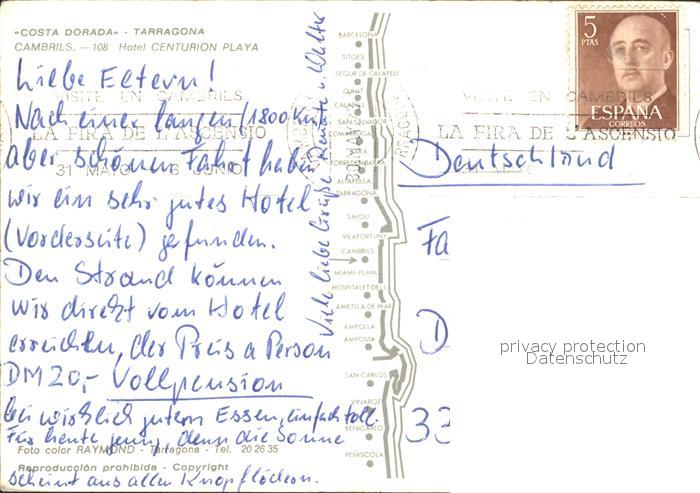 «COSTA DORADA» - TARRAGONA
CAMBRILS. — 108 Hotel CENTURION PLAYA
Liebe Eltern!
Nach einer langen (1800 Km)
aber schönen Fahrt haben
wir ein sehr gutes Hotel
(Vorderseite) gefunden.
Den Strand können
wir direkt vom Hotel
erreichen, der Preis a Person
DM 20,- Vollpension
bei wirklich gutem Essen, einfach toll.
Für heute genug, denn die Sonne
scheint aus allen Knopflöchern.
Viele liebe Grüße Renate u. Walter
Foto color RAYMOND - Tarragona - Tel. 20 26 35
Reproducción prohibida - Copyright
VISITE EN CAMBRILS
LA FIRA DE L'ASCENSIO
31 MAYO 3 JUNIO
BARCELONA
SITGES
SEGUR DE CALAFELL
CUNIT
CALAFELL
SAN SALVADOR
COMARRUGA
TORREDEMBARRA
ALTAFULLA
TARRAGONA
SALOU
VILAFORTUNY
CAMBRILS
MIAMI-PLAYA
HOSPITALET DEL I.
AMETLLA DE MAR
AMPOLLA
AMPOSTA
SAN CARLOS
VINAROZ
BENICARLO
PEÑISCOLA
5
PTAS
ESPAÑA
CORREOS
VISITE EN CAMBRILS
LA FIRA DE L'ASCENSIO
Deutschland
Fa
D
33
privacy protection
Datenschutz